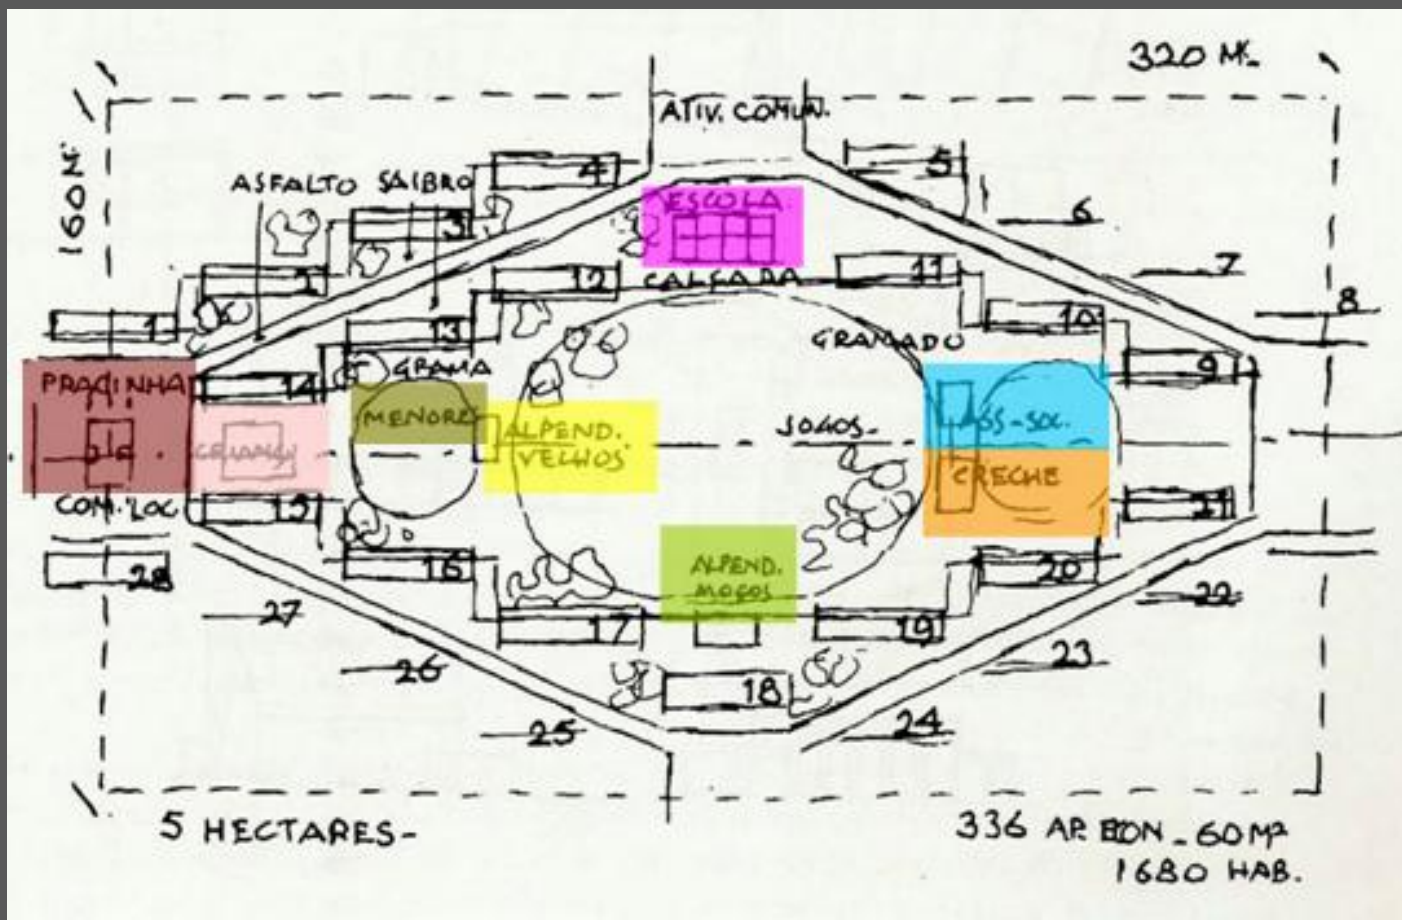 320 M.
160 M.
ATIV. COMUN.
4
5
ASFALTO SAIBRO
ESCOLA
3
6
12
CALÇADA
11
7
2
8
1
13
10
GRAMADO
GRAMA
9
PRACINHA
14
MENORES
ALPEND.
VELHOS
JOGOS-
ASS-SOC.
CRECHE
CRIANÇ
COM. LOC
15
21
28
16
ALPEND.
MOÇOS
20
22
27
17
19
26
18
23
25
24
5 HECTARES-
336 AP. ECON - 60 M²
1680 HAB.